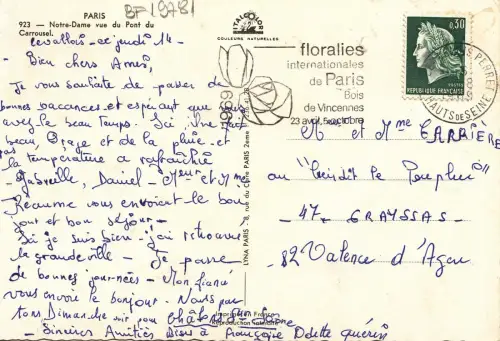 PARIS
923 - Notre-Dame vue du Pont du
Carrousel.
BF 19781
ITALCOLOR
COULEURS NATURELLES
Levallois - ce jeudi 14 -
Bien chers Amis,
Je vous souhaite de passer de
bonnes vacances et espérant que vous
avez le beau temps. Ici
beau, Orage et de la pluie et
la température a rafraichie
Gabrielle, Daniel - Mr et Mme
Réaume vous envoient le bon
jour et bon séjour -
Ici je suis bien - j'ai retrouvé
la grande ville - Je passe
de bonnes journées - Mon fiancé
vous envoie le bonjour. Nous par
tons Dimanche soir pour Châlon s/ Saône
Sincères Amitiés Bien à Françoise Odette Guérin
LYNA PARIS - 8, rue du Caire PARIS 2eme
Impression France
Reproduction Interdite
1969
floralies
internationales
de Paris
Bois
de Vincennes
23 avril 5 octobre
0,30
REPUBLIQUE FRANCAISE
POSTES
PERRET
HAUTS DE SEINE
M et Mme CARRIERE
au "lieu dit le Peuplier"
- 47 - GRAYSSAS -
82 Valence d'Agen